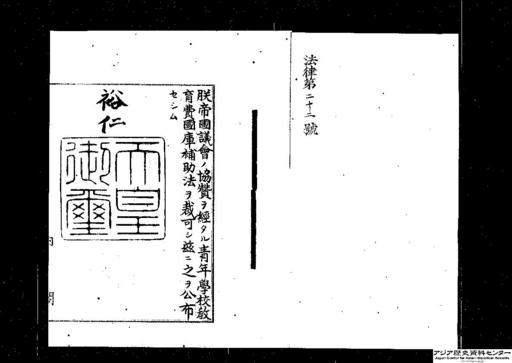 法律第二十二號
朕帝國議會ノ協贊ヲ經タル青年學校教
育費國庫補助法ヲ裁可シ茲ニ之ヲ公布
セシム
裕仁
天皇
御璽
内
閣
アジア歴史資料センター
Japan Center for Asian Historical Records